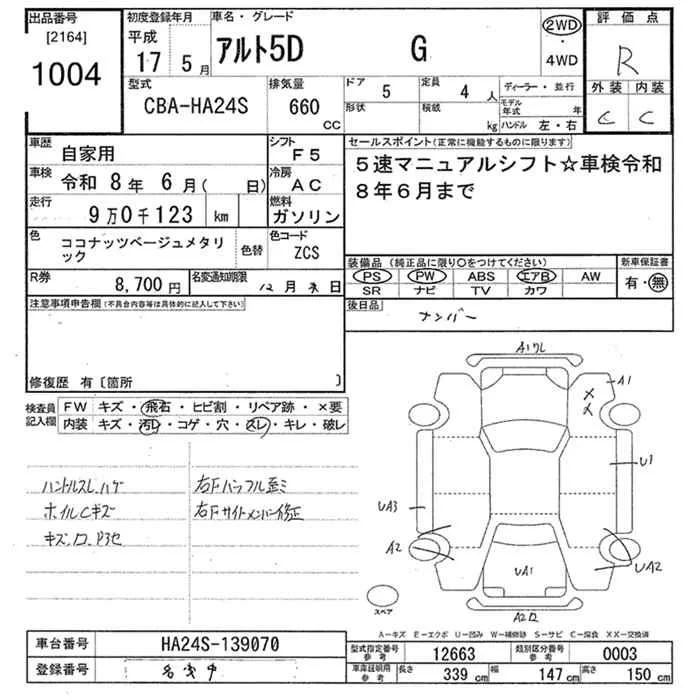 出品番号
[2164]
1004
初度登録年月
平成
17 5月
車名・グレード
アルト5D G
2WD
・
4WD
評価点
R
外装 内装
C C
型式
CBA-HA24S
排気量
660
CC
ドア
5
定員
4 人
形状
積載
kg
ディーラー・並行
モデル年式 年
ハンドル 左・右
車歴
自家用
シフト
F5
車検
令和 8年 6月( 日)
冷房
AC
走行
9万0千123 km
燃料
ガソリン
色
ココナッツベージュメタリック
色替
色コード
ZCS
R券
8,700円
名変通知期限
12月末日
セールスポイント(正常に機能するものに限ります)
5速マニュアルシフト☆車検令和
8年6月まで
装備品(純正品に限り〇をつけてください)
PS PW ABS エアB AW
SR ナビ TV カワ
新車保証書
有・無
後日品
ナンバー
注意事項申告欄(不具合内容等は具体的に記入して下さい)
修復歴 有〔箇所 〕
検査員
記入欄
FW キズ・飛石・ヒビ割・リペア跡・×要
内装 キズ・汚レ・コゲ・穴・スレ・キレ・破レ
ハンドルスレ、ハゲ
ホイルCキズ
右Fサイドメンバー修正
A1
U1
UA3
A2
UA2
UA1
スペア
A-キズ E-エクボ U-凹み W-補修跡 S-サビ C-腐食 XX-交換済
車台番号
HA24S-139070
登録番号
名変中
型式指定番号
参考
12663
類別区分番号
参考
0003
車庫証明用
参考
長さ 339 cm 幅 147 cm 高さ 150 cm